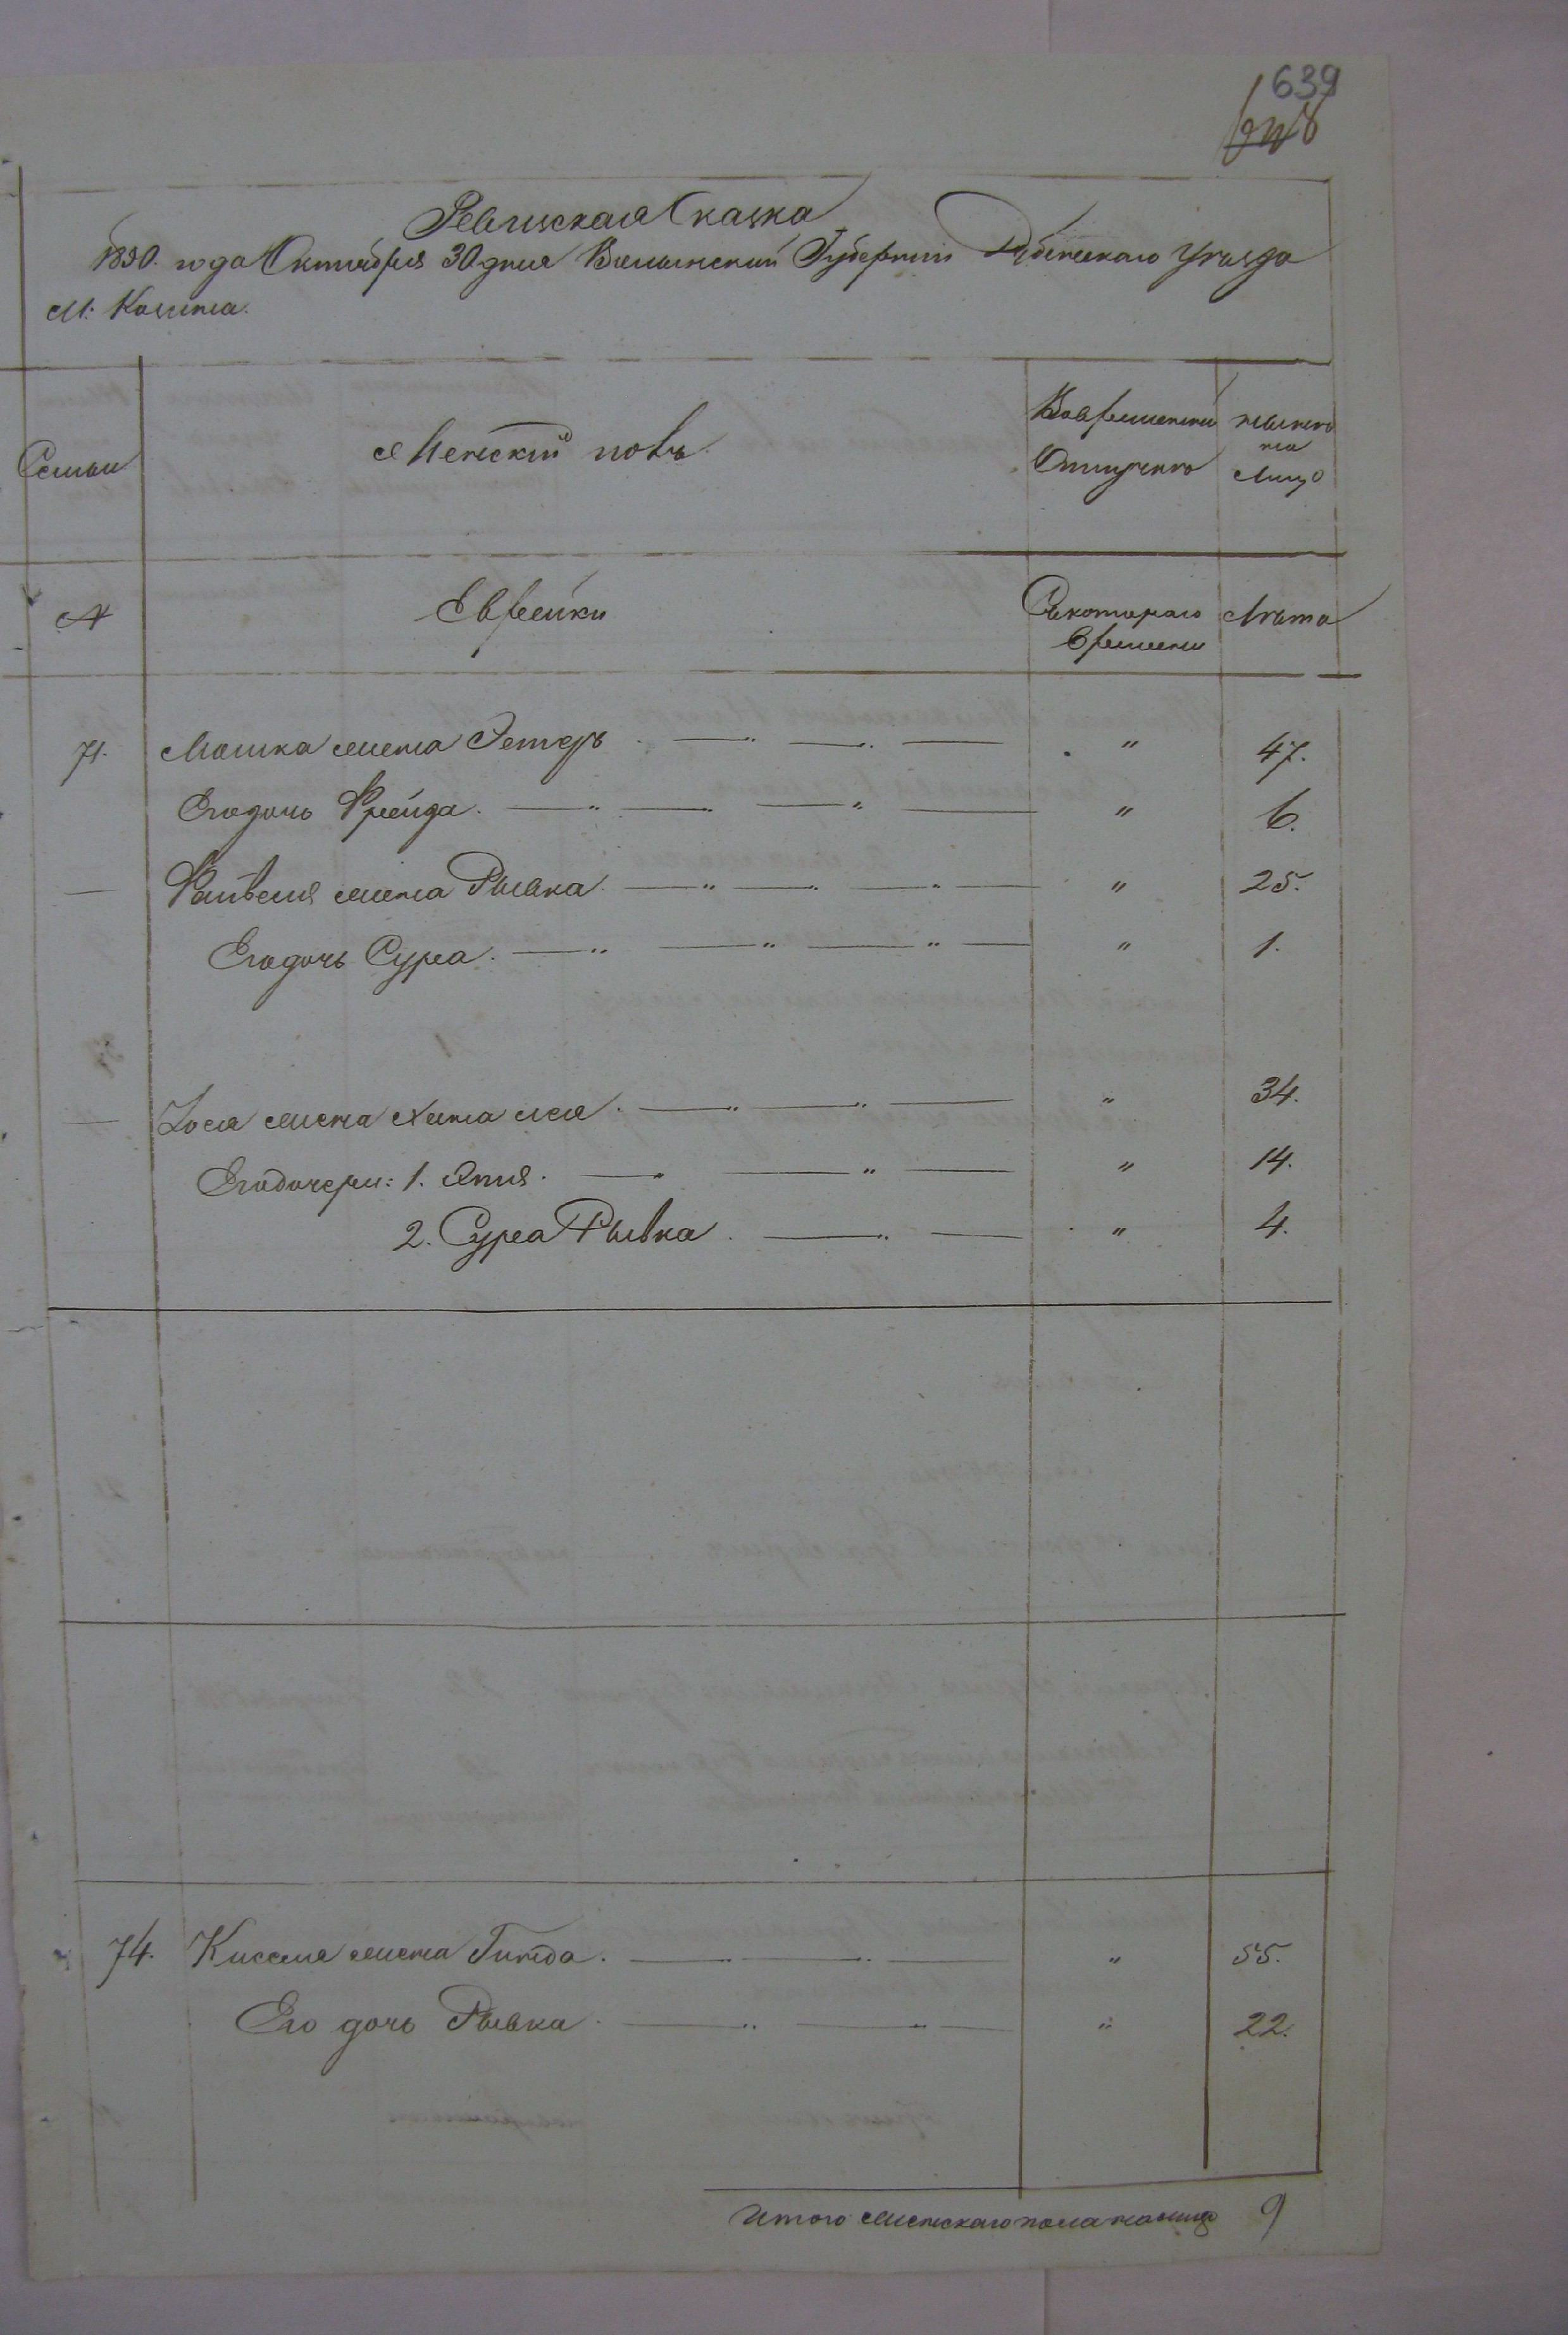 639
Ревиская Сказка
1850. года Октября 30 дня Волынский Губернии Дубенскаго уѣзда
М: Козина.
Семьи
Женский полъ.
Во временной
Отлучкѣ
нынѣ
на
лицо
№
Еврейки
Съ котораго
времени
Лѣта
71. Мошка жена Эстеръ . — „ — „ — „ 47.
Его дочь Фрейда. — „ — „ — „ — „ 6.
— Файвеля жена Рывка — „ — „ — „ — „ 25.
Его дочь Сура. — „ — „ — „ — „ 1.
— Іося жена Хана Лея . — „ — „ — „ 34.
Его дочери: 1. Этя. — „ — „ — „ 14.
2. Сура Рывка . — „ — „ 4.
74. Киселя жена Гитда . — „ — „ — „ 55.
Его дочь Рывка . — „ — „ — „ 22.
Итого женскаго пола на лицо 9